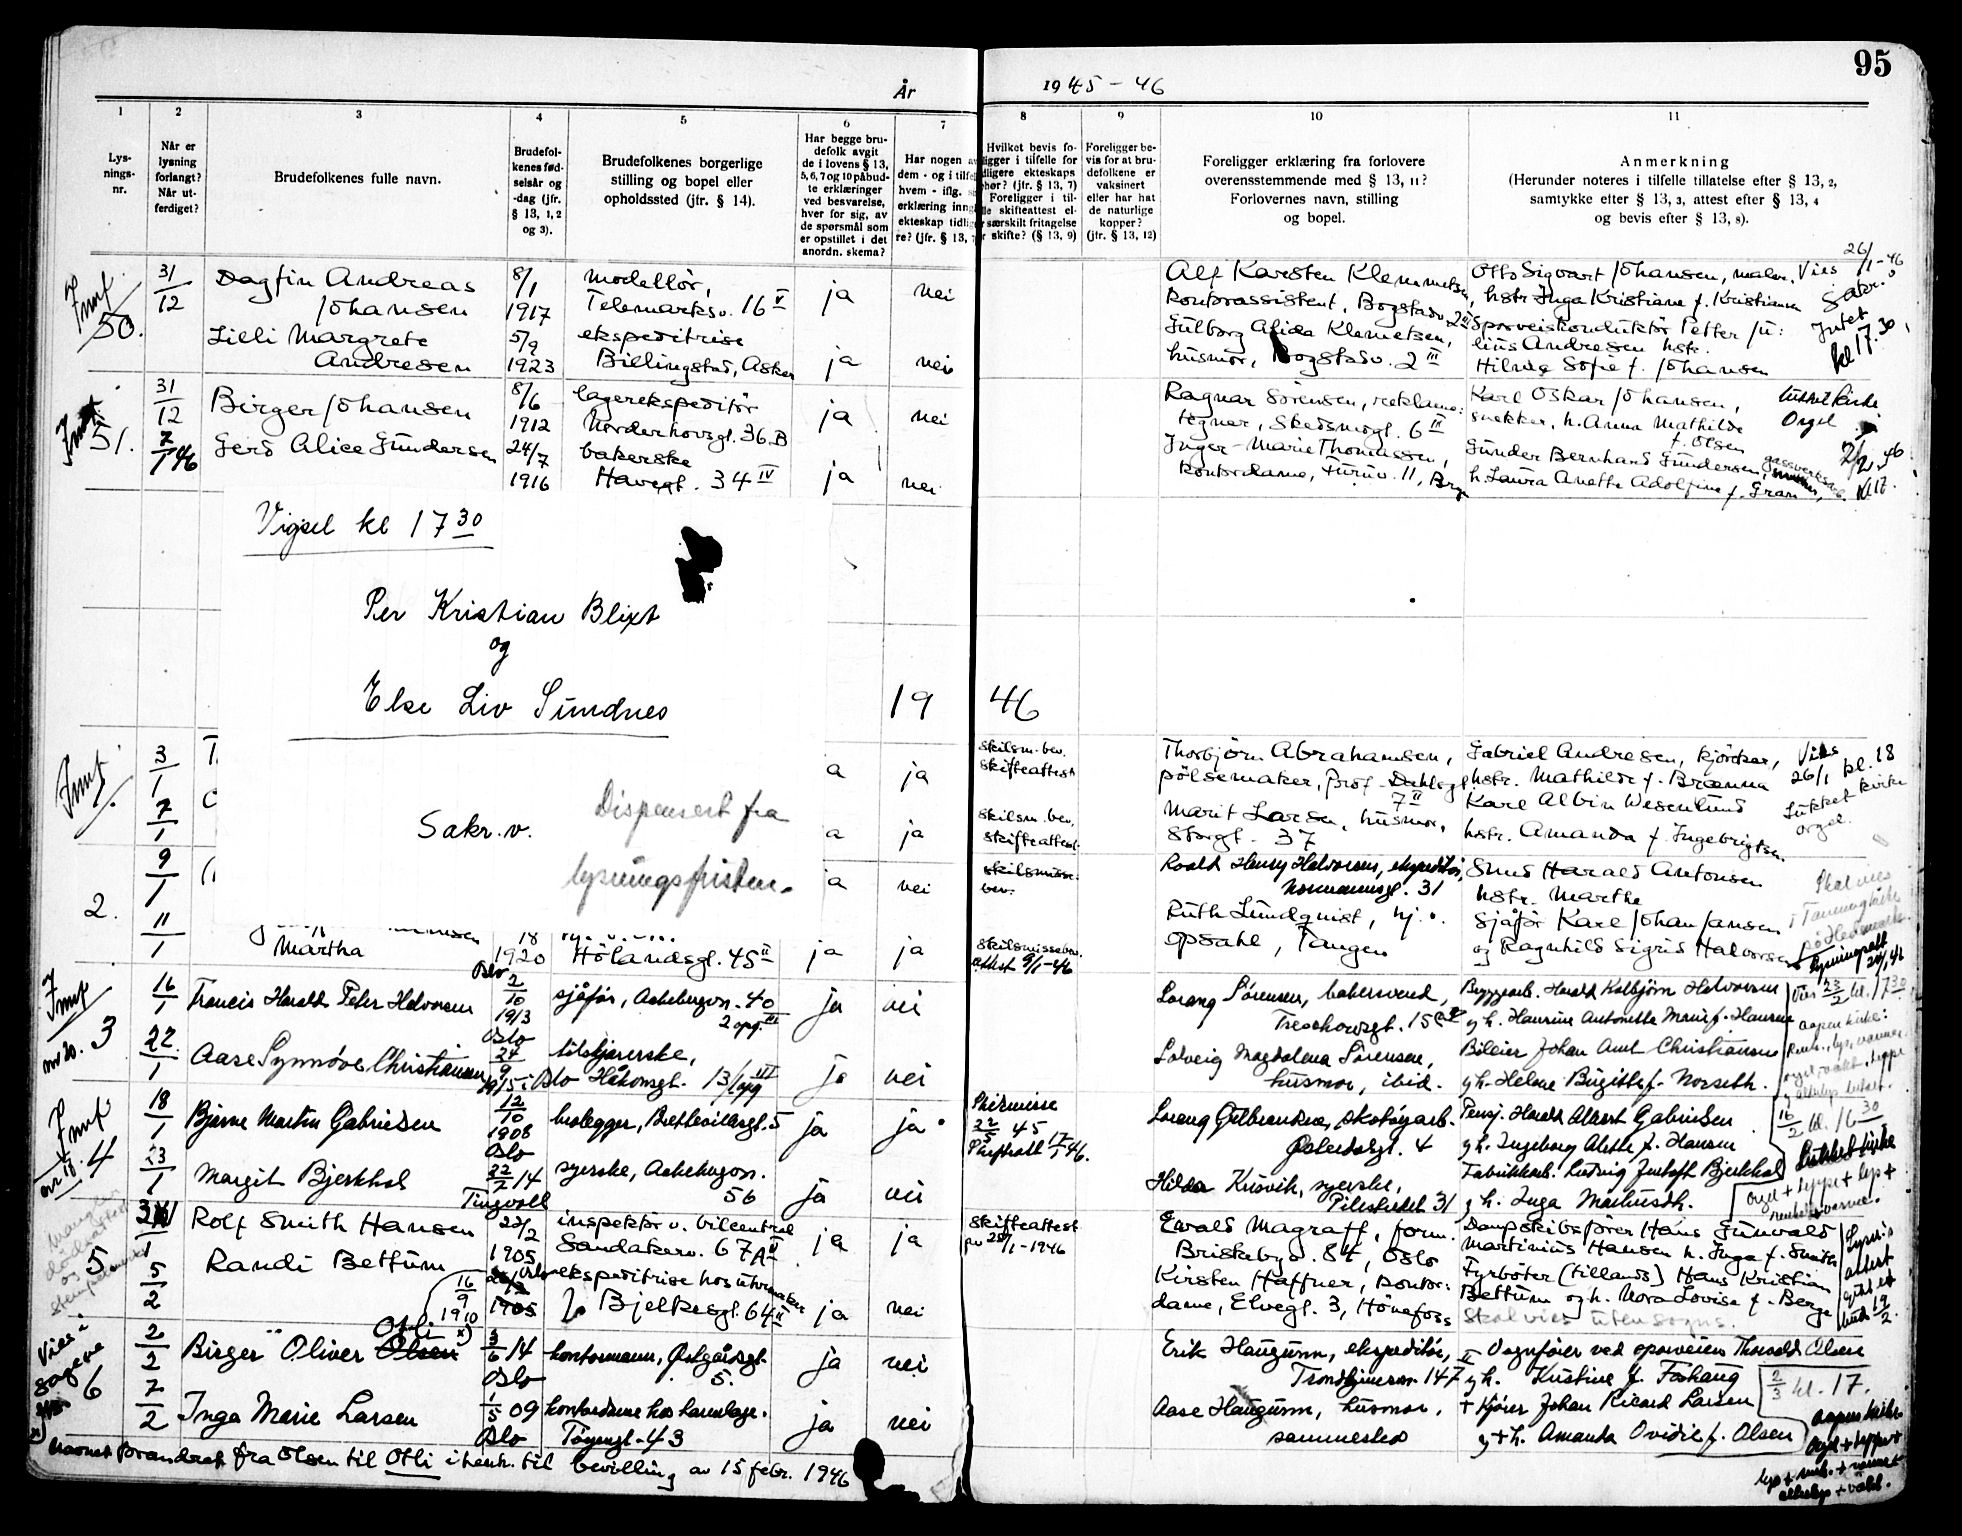 95
År
1945-46
1
2
3
4
5
6
7
8
9
10
11
Lys-
nings-
nr.
Når er
lysning
forlangt?
Når ut-
ferdiget?
Brudefolkenes fulle navn.
Brudefol-
kenes fød-
selsår og
-dag (jfr.
§ 13, 1, 2
og 3).
Brudefolkenes borgerlige
stilling og bopel eller
opholdssted (jfr. § 14).
Har begge bru-
defolk avgit
de i lovens § 13,
5, 6, 7 og 10 påbud-
te erklæringer
ved besvarelse,
hver for sig, av
de spørsmål som
er opstillet i det
anordn. skema?
Har nogen a
dem - og i tilfe
hvem - iflg.
erklæring inng
ekteskap tidlig
re? (jfr. § 13,
Hvilket bevis fo-
ligger i tilfelle for
dligere ekteskaps
ehør? (jfr. § 13, 7)
Foreligger i til-
le skifteattest el-
særskilt fritagelse
r skifte? (§ 13, 9)
Foreligger be-
vis for at bru-
defolkene er
vaksinert
eller har hat
de naturlige
kopper?
(jfr. § 13, 12)
Foreligger erklæring fra forlovere
overensstemmende med § 13, 11?
Forlovernes navn, stilling
og bopel.
Anmerkning
(Herunder noteres i tilfelle tillatelse efter § 13, 2,
samtykke efter § 13, 3, attest efter § 13, 4
og bevis efter § 13, 8).
50.
31/12
Dagfin Andreas
Johansen
8/1
1917
modellør,
Telemarksv. 16 V
ja
nei
Alf Karsten Klemmetsen,
kontorassistent, Bogstadv. 2 III
Otto Sigvart Johansen, maler,
hstr. Inga Kristiane f. Kristiansen
Vies 26/1-46
Sakr.
Intet
kl 17.30
Lilli Margrete
Andresen
5/9
1923
ekspeditrise
Billingstad, Asker
ja
nei
Gulborg Alida Klemetsen,
husmor, Bogstadv. 2 III
Sporveiskonduktør Petter Ju:
lius Andresen hstr.
Hilvig Sofie f. Johansen
51.
31/12
7/1 46
Birger Johansen
8/6
1912
lagerekspeditør
Norderhovsgt. 36.B
ja
nei
Ragnar Sørensen, reklame:
tegner, Skedsmogt. 6 III
Karl Oskar Johansen,
snekker, h. Anna Mathilde
f. Olsen
Lukket kirke
Orgel
Gerd Alice Gundersen
24/7
1916
bakerske
Havegt. 34 IV
ja
nei
Inger-Marie Thomassen,
kontordame, Furuv. 11,
Gunder Bernhard Gundersen,
h. Laura Anette Adolfine f. Gran
2/2 46
kl 17.
Vigsel kl 17 30
Per Kristian Blixt
og
Else Liv Sundnes
Sakr. v.
Dispensert fra
lysningsfristen.
19 46
3/1
7/1
a
ja
skilsm. bev.
skifteattest
Thorbjørn Abrahamsen,
pølsemaker, Prof. Dahlsgt.
7 II
Gabriel Andresen, kjørekar,
hstr. Mathilde f. Brænna
Vies
26/1 kl. 18
Lukket kirke
orgel.
a
ja
skilsm. bev,
skifteattest.
Marit Larsen, husmor,
Storgt. 37
Karl Albin Wesenlund
hstr. Amanda f. Ingebrigtsen
2.
9/1
11/1
a
nei
skilsmisse:
bev.
Roald Henry Halvorsen, ekspeditør,
Normannsgt. 31
Smed Harald Antonsen
hstr. Marthe
Skal vies
i Tangen kirke
på Hedmark.
Martha
18
1920
Hølandsgt. 45 II
ja
ja
skilsmissebev.
attest 9/1-46
Ruth Lundquist, hj. v.
Opsahl, Tangen
Sjåfør Karl Johan Jansen
og Ragnhild Sigrid Halvorsen
Lysningsatt
3
16/1
Francis Harald Peter Halvorsen
Oslo
2/10
1913
sjåfør, Akebergvn. 40
2 opg. III
ja
nei
Lorang Sørensen, bakersvend,
Treschowsgt. 15
Byggearb. Harald Kolbjørn Halvorsen
g h. Haurine Antonette Marie f. Hansen
Vies 23/2 kl. 17 30
aapen kirke:
22/1
Aase Synnøve Christiansen
Oslo
24/9
1915 i Oslo
tilskjærerske,
Håkonsgt. 13 / opg III
ja
nei
Solveig Magdalena Sørensen,
husmor, ibid.
Bileier Johan Aml Christiansen
g h. Helene Birgitte f. Norseth.
4
18/1
Bjarne Martin Gabrielsen
12/10
1908
Oslo
ja
ja
Skilsmisse
22/5 45
Skifteatt 17/1-46.
Lorang Gulbrandsen, skotøyarb.
Østerdalsgt. 4
Pensj. Harald Albert Gabrielsen
g h. Ingeborg Alethe f. Hansen
16/2 kl. 16 30
Lukket kirke
23/1
Margit Bjerkhol
22/7 14
Tingvoll
syerske, Akebergvn.
56
ja
nei
Hilda Kusvik, syerske,
Pilestredet 31
Fabrikkarb. Ludvig Bjerkhol
g h. Inga Meilusdh.
orgel + teppe + lys +
5
Mangler
dødsattest
og
Rolf Smith Hansen
22/2
1905
Oslo
inspektør v. bilcentral
Sandakerv. 67A II
ja
ja
Skifteattest
av 25/1-1946
Ewald Magraff, form.
Briskebyv. 84, Oslo
Dampskibsfører Hans Gunvald
Martinius Hansen h. Inga f. Smith
Lysn.s
attest
5/2
Randi Bettum
16/9
1910
1905
ekspeditrise hos urmaker
Bjelkesgt. 64 II
ja
nei
Kirsten Haffner, kontor:
dame, Elvegt. 3, Hønefoss
Fyrbøter (tillands) Hans Kristian
Bettum og h. Nora Lovise f. Berge
Skal vies utensogns.
19/2.
Vies i
Sagene
6
2/2
Birger Oliver Olsen
Otli x)
3/6 14
Oslo
kontormann, Østgårdsgt.
5.
ja
nei
Erik Haugurn, ekspeditør,
Trondhjemsvn. 147 II
Vognfører ved sporveien Thorvald Olsen
g h. Kristine f. Fåhaug
2/3 kl. 17.
7/2
Inga Marie Larsen
1/5 09
Oslo
Tøyengt. 43
ja
nei
Aase Haugurn, husmor,
sammested
+ Kjører Johan Ricard Larsen
g + h. Amanda Ovidie f. Olsen
aapen kirke
Orgel + teppe +
x) Navnet forandret fra Olsen til Otli i henh. til bevilling av 15 febr. 1946